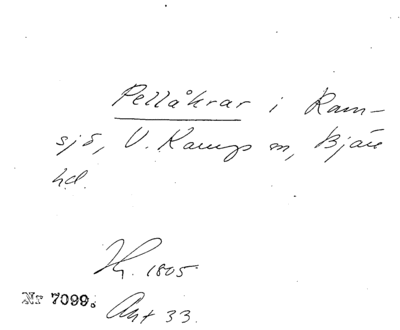 Pellåkrar i Ram-
sjö, V. Karups sn, Bjäre
hd.
Hr. 1805
Nr 7099. Ant 33.